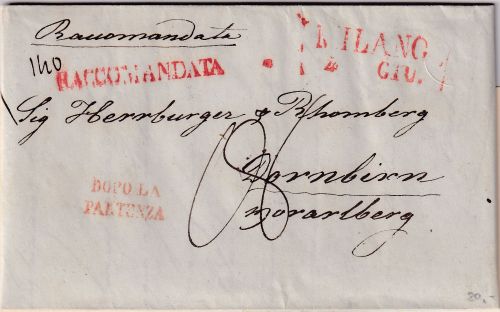 Raccomandata
140
RACCOMANDATA
MILANO
4 GIU.
Sig Herrburger & Rhomberg
Dornbirn
Vorarlberg
DOPO LA
PARTENZA
20,-